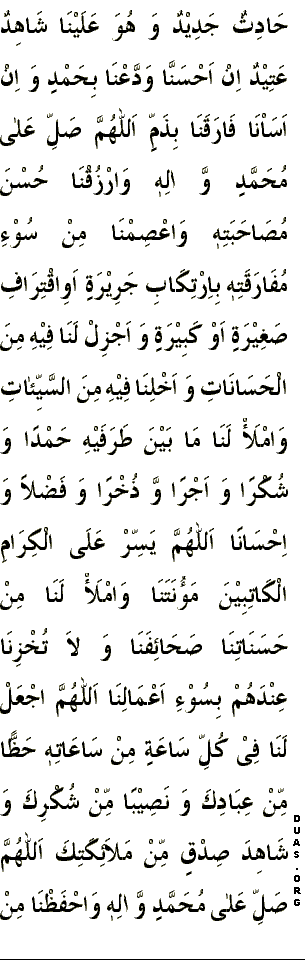 حَادِثٌ جَدِيْدٌ وَ هُوَ عَلَيْنَا شَاهِدٌ
عَتِيْدٌ اِنْ اَحْسَنَّا وَدَّعْنَا بِحَمْدٍ وَ اِنْ
اَسَاْنَا فَارَقَنَا بِذَمٍّ اَللّٰهُمَّ صَلِّ عَلٰى
مُحَمَّدٍ وَّ اٰلِهٖ وَارْزُقْنَا حُسْنَ
مُصَاحَبَتِهٖ وَاعْصِمْنَا مِنْ سُوْءِ
مُفَارَقَتِهٖ بِاِرْتِكَابِ جَرِيْرَةٍ اَوِاقْتِرَافِ
صَغِيْرَةٍ اَوْ كَبِيْرَةٍ وَ اَجْزِلْ لَنَا فِيْهِ مِنَ
الْحَسَانَاتِ وَ اَخْلِنَا فِيْهِ مِنَ السَّيِّئَاتِ
وَامْلَأْ لَنَا مَا بَيْنَ طَرَفَيْهِ حَمْدًا وَ
شُكْرًا وَ اَجْرًا وَّ ذُخْرًا وَ فَضْلاً وَ
اِحْسَانًا اَللّٰهُمَّ يَسِّرْ عَلَى الْكِرَامِ
الْكَاتِبِيْنَ مَؤُنَتَنَا وَامْلَأْ لَنَا مِنْ
حَسَنَاتِنَا صَحَائِفَنَا وَ لاَ تُخْزِنَا
عِنْدَهُمْ بِسُوْءِ اَعْمَالِنَا اَللّٰهُمَّ اجْعَلْ
لَنَا فِىْ كُلِّ سَاعَةٍ مِنْ سَاعَاتِهٖ حَظًّا
مِّنْ عِبَادِكَ وَ نَصِيْبًا مِّنْ شُكْرِكَ وَ
شَاهِدَ صِدْقٍ مِّنْ مَلَاۤئِكَتِكَ اَللّٰهُمَّ
صَلِّ عَلٰى مُحَمَّدٍ وَّ اٰلِهٖ وَاحْفَظْنَا مِنْ
DUAS.ORG